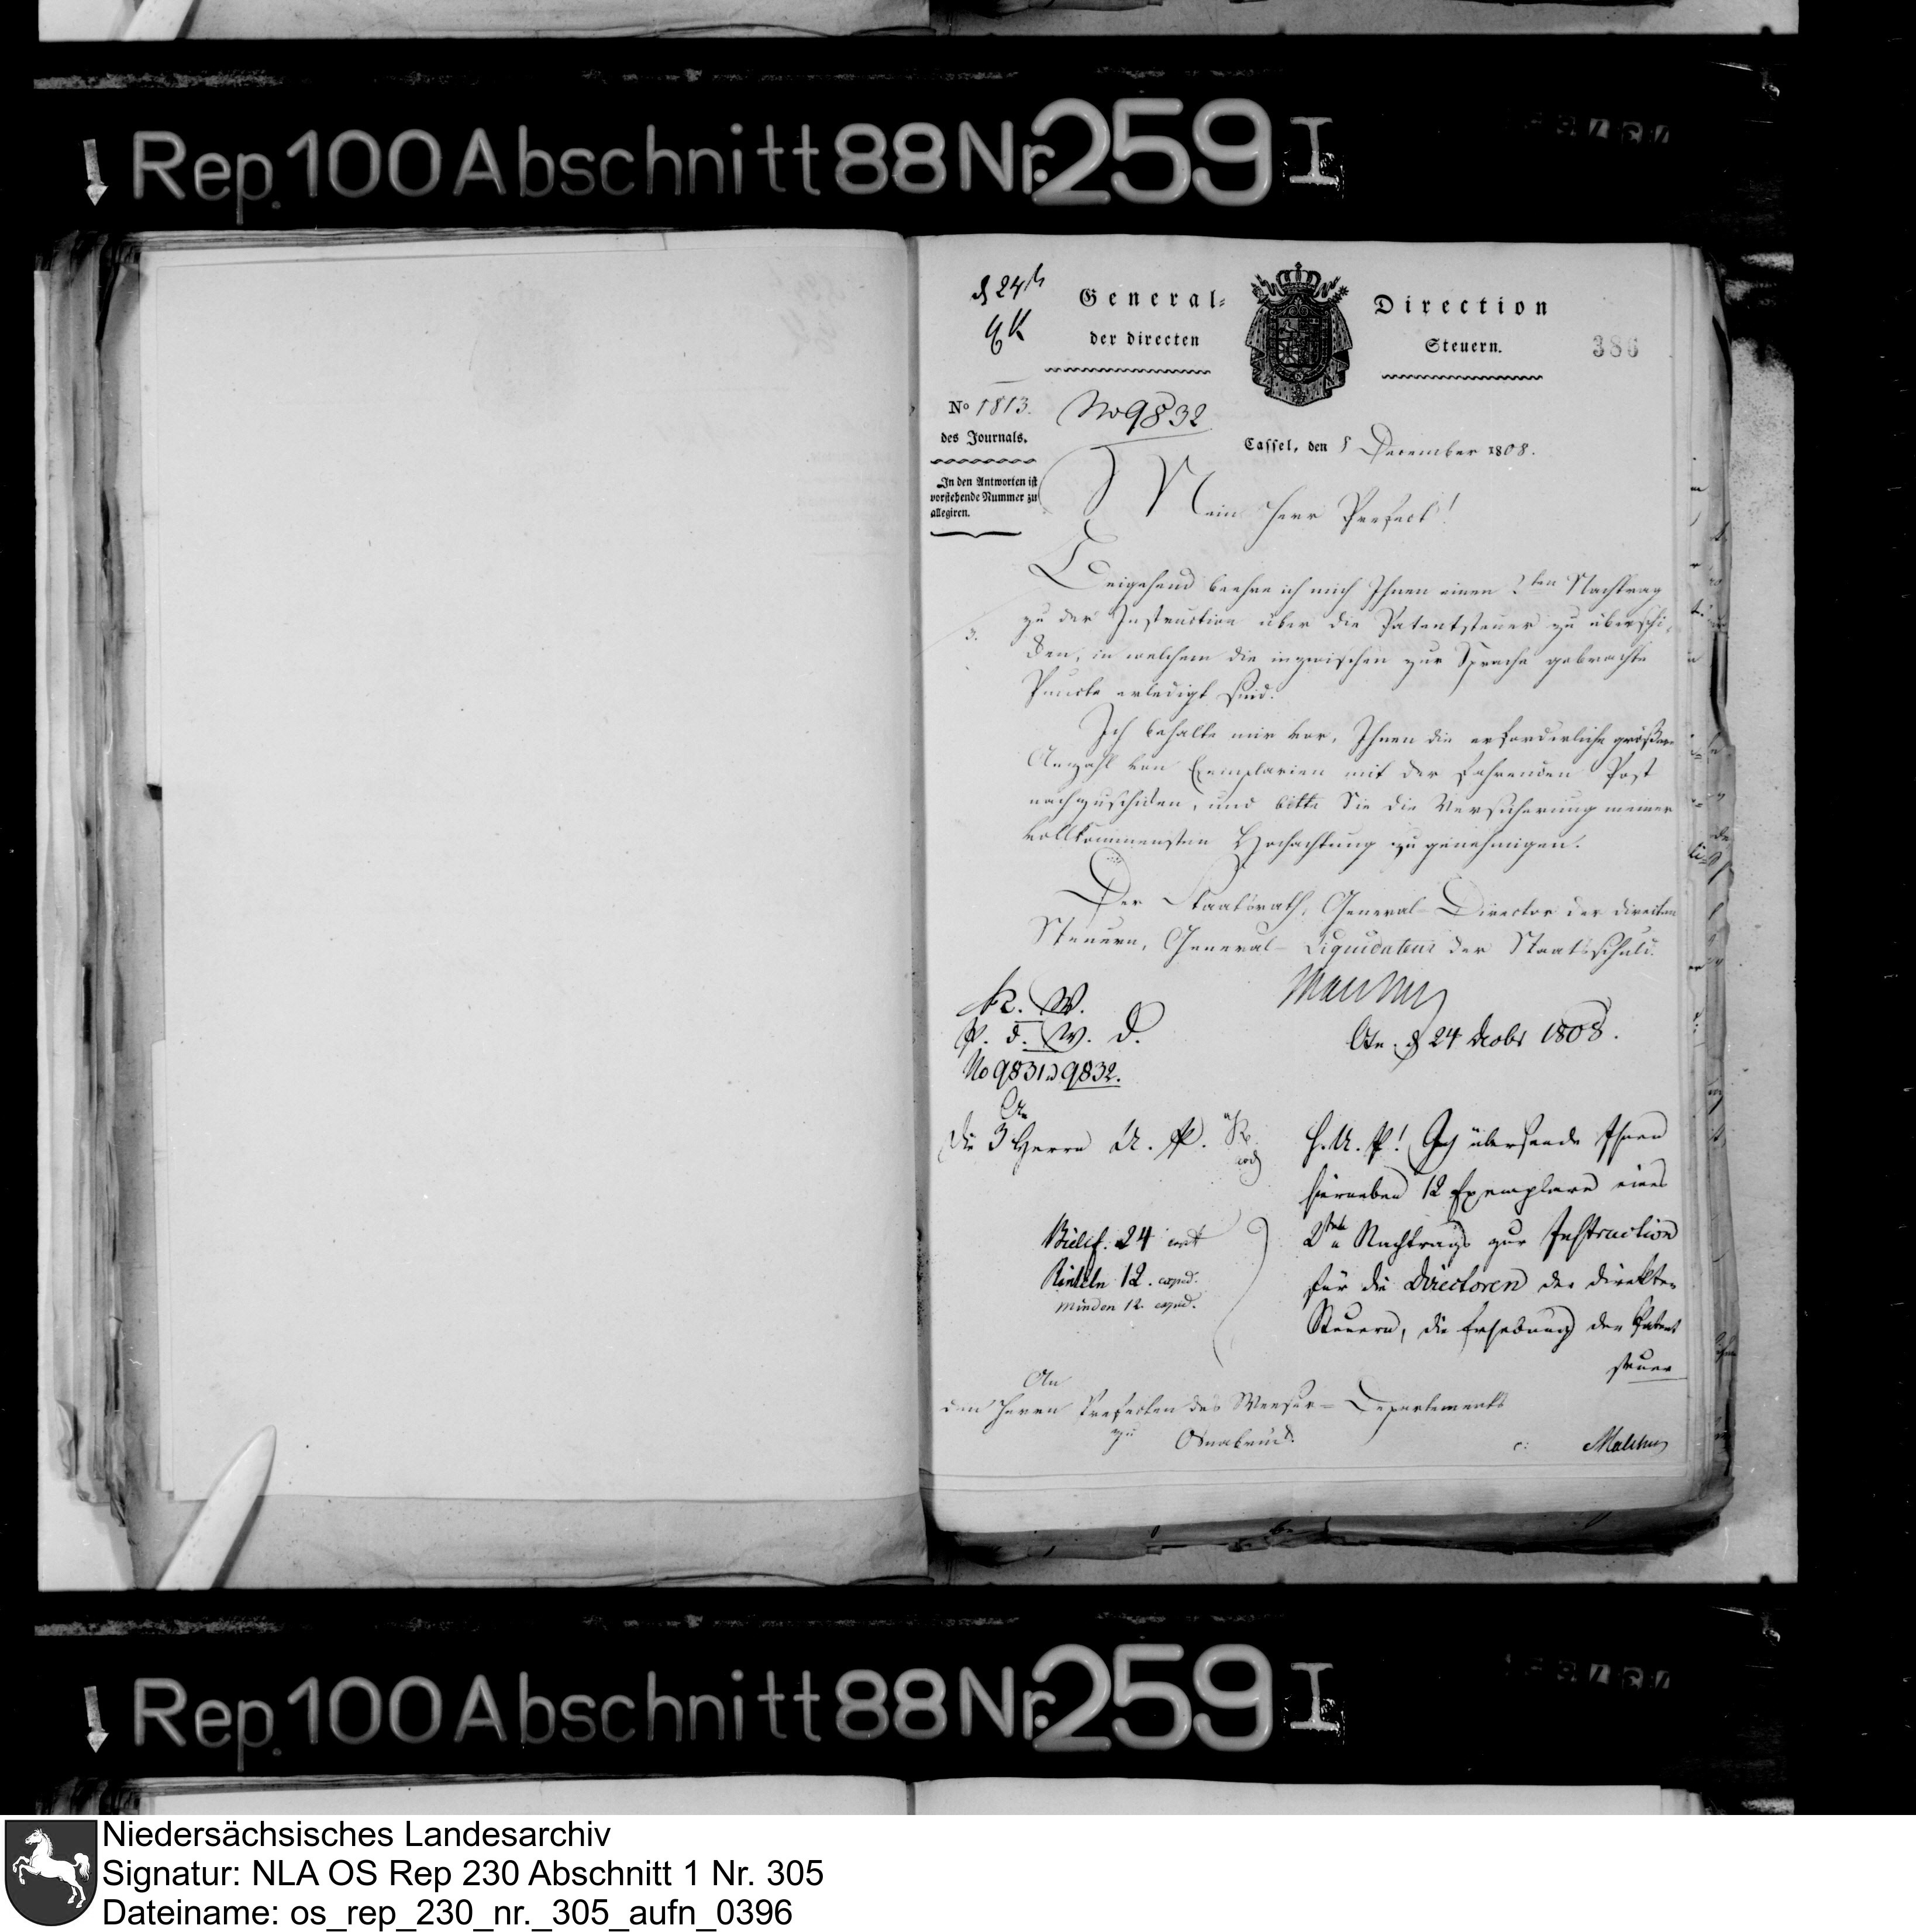 Rep. 100 Abschnitt 88 Nr. 259 I
General- Direction
der directen Steuern.
386
No 1813.
No 9832
des Journals.
Cassel, den 5 December 1808.
In den Antworten ist
vorstehende Nummer zu
allegiren.
Mein Herr Prefect!
Beigehend beehre ich mich Ihnen einen 2ten Nachtrag
zu der Instruction über die Patentsteuer zu überschi-
3.
den, in welchem die inzwischen zur Sprache gebrachte
Puncte erledigt sind.
Ich behalte mir vor, Ihnen die erforderliche größere
Anzahl von Exemplarien mit der fahrenden Post
nachzuschiken, und bitte Sie die Versicherung meiner
vollkommensten Hochachtung zu genehmigen.
Der Staatsrath, General-Director der directen
Steuern, General-Liquidateur der Staatsschuld.
Malchus
K. W.
P. d. W. D.
Osn. d 24 Decbr 1808.
No 9831 u 9832.
An
die 3 Herrn U. P.
H. U. P.! Ich übersende Ihnen
hierneben 12 Exemplare eines
Bielef. 24
2ten Nachtrags zur Instruction
Rinteln 12. exped.
für die Directoren der direkten
Minden 12. exped.
Steuern, die Erhebung der Patent
steuer
An
den Herrn Prefecten des Weeser-Departements
zu Osnabrück.
Malchus
Rep. 100 Abschnitt 88 Nr. 259 I
Niedersächsisches Landesarchiv
Signatur: NLA OS Rep 230 Abschnitt 1 Nr. 305
Dateiname: os_rep_230_nr._305_aufn_0396